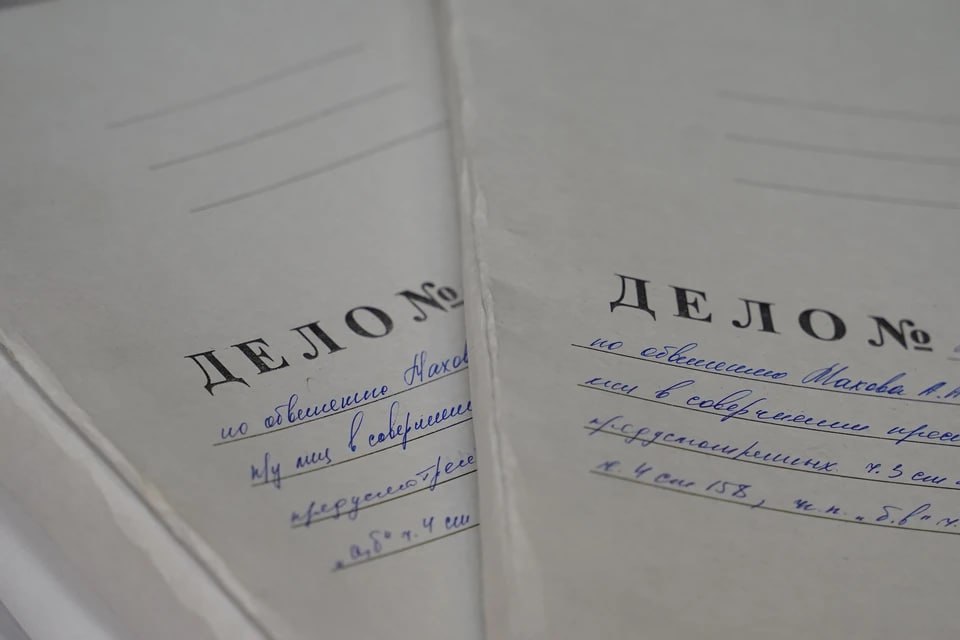 ДЕЛО №
по обвинению Махов
гр/у лиц в соверш
предусмотрен
"а,б" ч. 4 ст
ДЕЛО №
по обвинению Махова А.А
лиц в совершении прес
предусмотренных ч. 3 ст
ч. 4 ст 158, п.п. "б,в" ч.